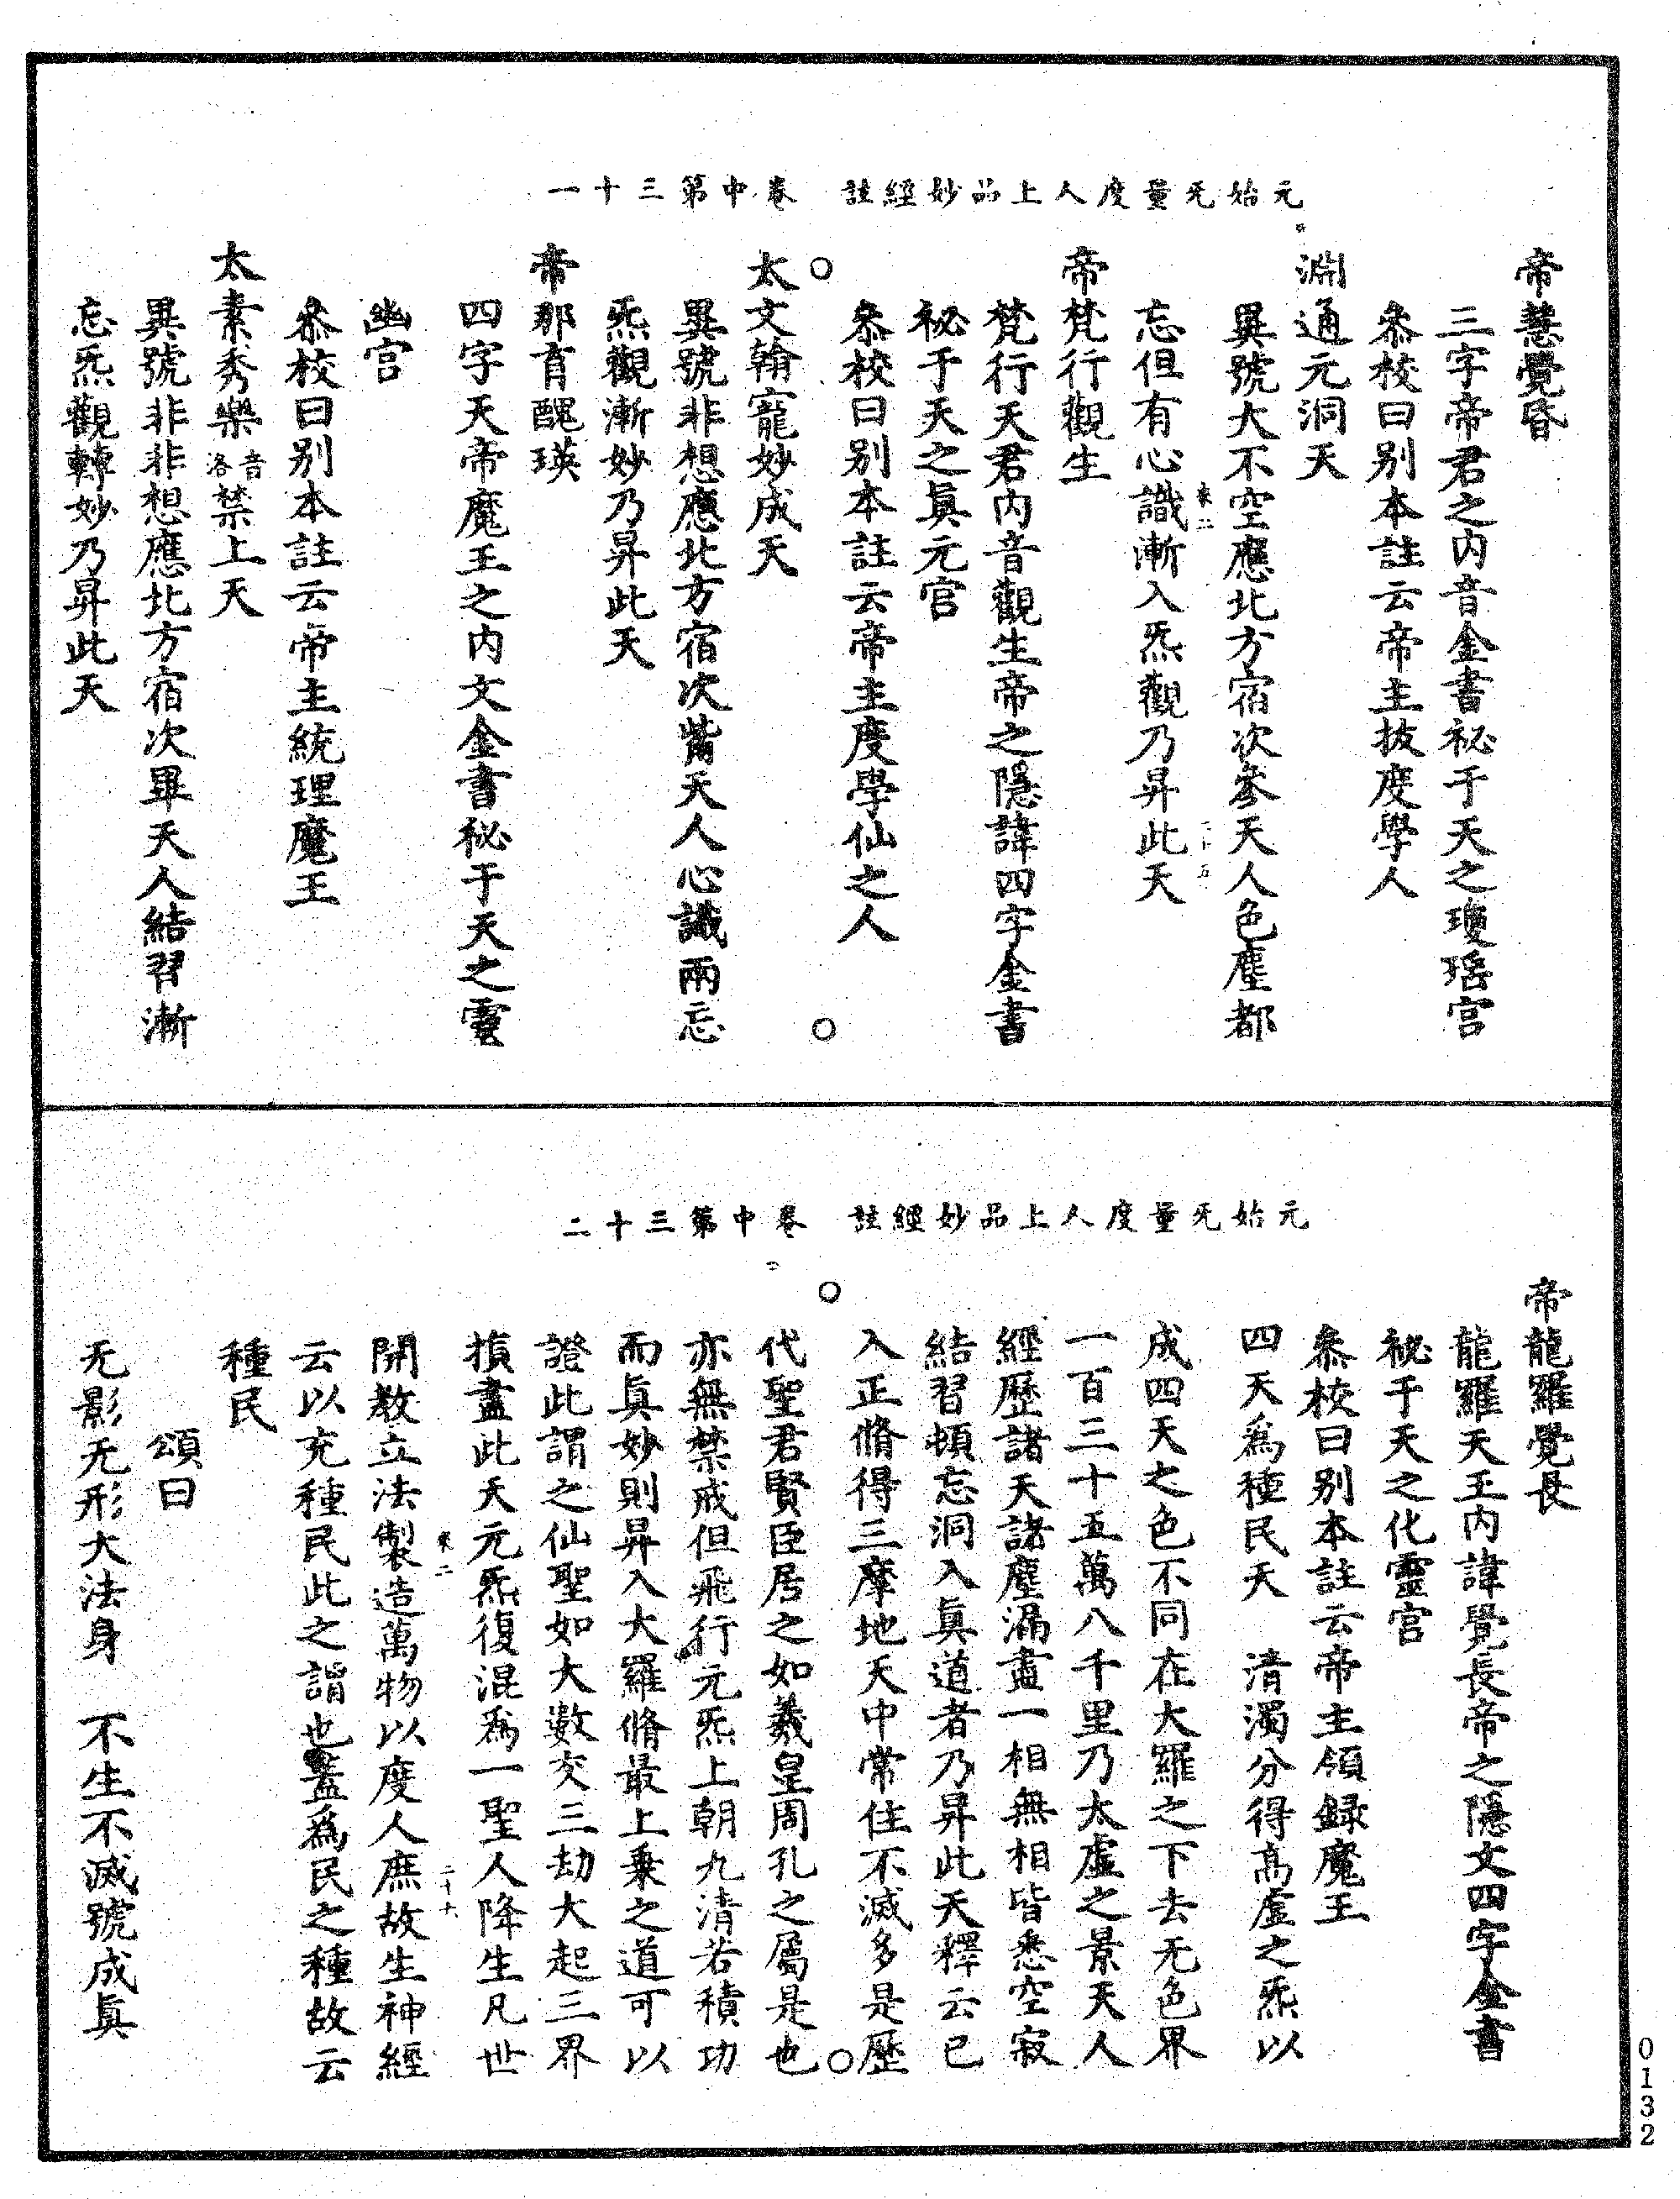 元始旡量度人上品妙經註　卷中第三十一
帝慧覺昏
三字帝君之内音金書祕于天之瓊瑤宫
叅校曰别本註云帝主拔度學人
淵通元洞天
異號大不空應北方宿次參天人色塵都
忘但有心識漸入炁觀乃昇此天
來二
二十五
帝梵行觀生
梵行天君内音觀生帝之隱諱四字金書
祕于天之眞元官
叅校曰别本註云帝主度學仙之人
太文翰寵妙成天
異號非想應北方宿次觜天人心識兩忘
炁觀漸妙乃昇此天
帝那育醜瑛
四字天帝魔王之内文金書秘于天之靈
幽宫
叅校曰别本註云帝主統理魔王
太素秀樂音洛禁上天
異號非非想應北方宿次畢天人結習漸
忘炁觀轉妙乃昇此天
元始旡量度人上品妙經註　卷中第三十二
帝龍羅覺長
龍羅天王内諱覺長帝之隱文四字金書
祕于天之化靈宫
叅校曰别本註云帝主領録魔王
四天爲種民天　清濁分得髙虛之炁以
成四天之色不同在大羅之下去无色界
一百三十五萬八千里乃太虛之景天人
經歷諸天諸塵漏盡一相無相皆悉空寂
結習頓忘洞入眞道者乃昇此天釋云已
入正脩得三摩地天中常住不滅多是歷
代聖君賢臣居之如羲皇周孔之屬是也
亦無禁戒但飛行元炁上朝九清若積功
而眞妙則昇入大羅脩最上乗之道可以
證此謂之仙聖如大數交三劫大起三界
損盡此天元炁復混爲一聖人降生凡世
開教立法製造萬物以度人庶故生神經
來二
云以充種民此之謂也蓋爲民之種故云
種民
頌曰
无影无形大法身　不生不滅號成眞
0132